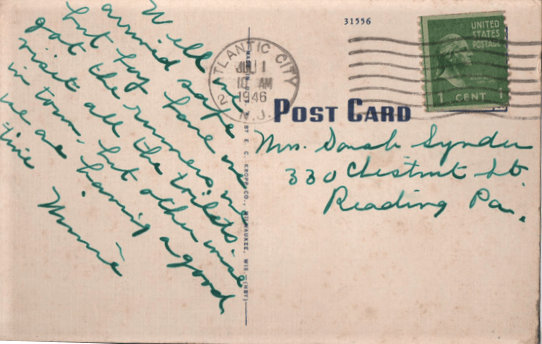 Well we
arrived safe
but boy have we
got the runners, we
visit all the toilets
in town, but other wise
we are having a good
time
Minnie
31556
ATLANTIC CITY
JUL 1
10 AM
1946
2 N.J.
UNITED
STATES
POSTAGE
1 CENT
POST CARD
E. C. KROPP CO., MILWAUKEE, WIS.
Mrs. Sarah Snyder
330 Chestnut St
Reading Pa.